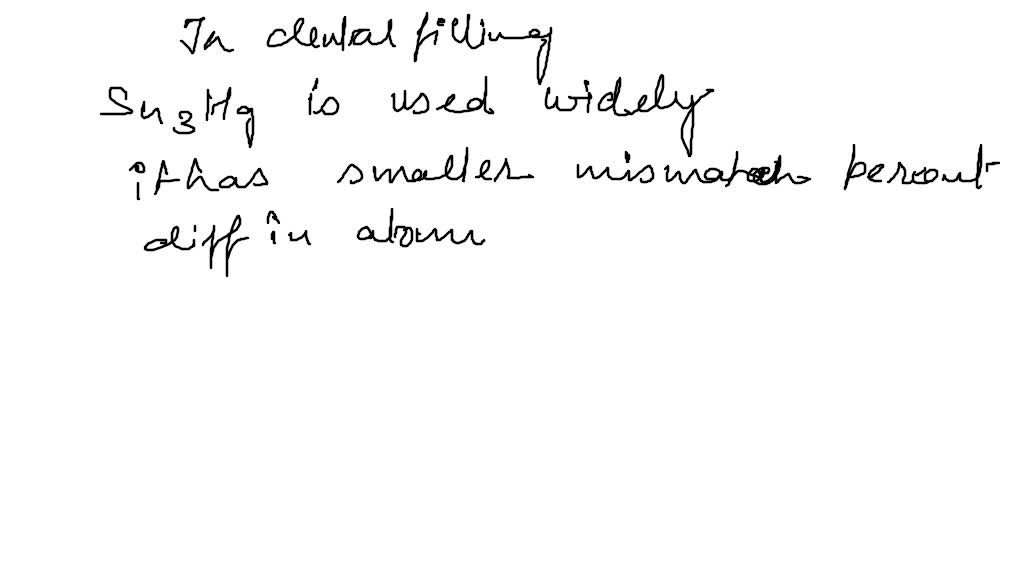 In dental filling
Sn3Hg is used widely
it has smaller mismatch percent
diff in atom